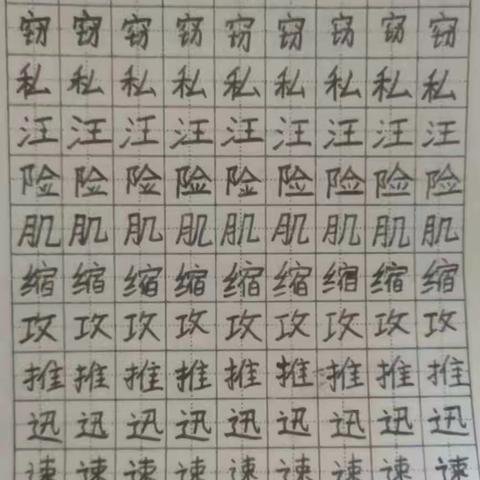 窃窃窃窃窃窃窃窃窃
私私私私私私私私私
汪汪汪汪汪汪汪汪汪
险险险险险险险险险
肌肌肌肌肌肌肌肌肌
缩缩缩缩缩缩缩缩缩
攻攻攻攻攻攻攻攻攻
推推推推推推推推推
迅迅迅迅迅迅迅迅迅
速速速速速速速速速